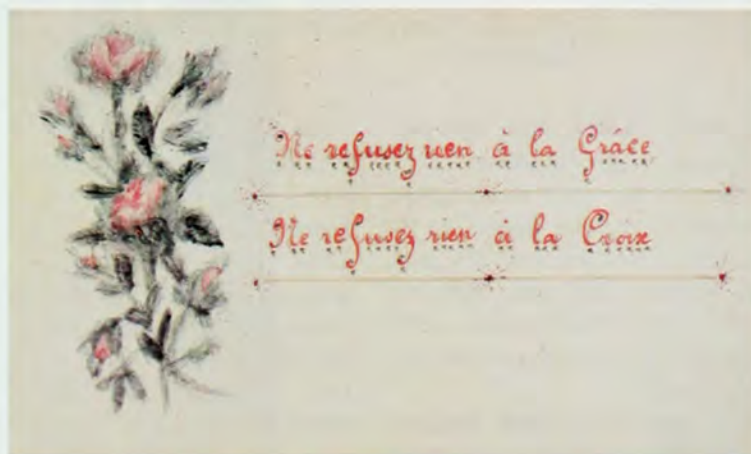 Ne refusez rien à la Grâce
Ne refusez rien à la Croix